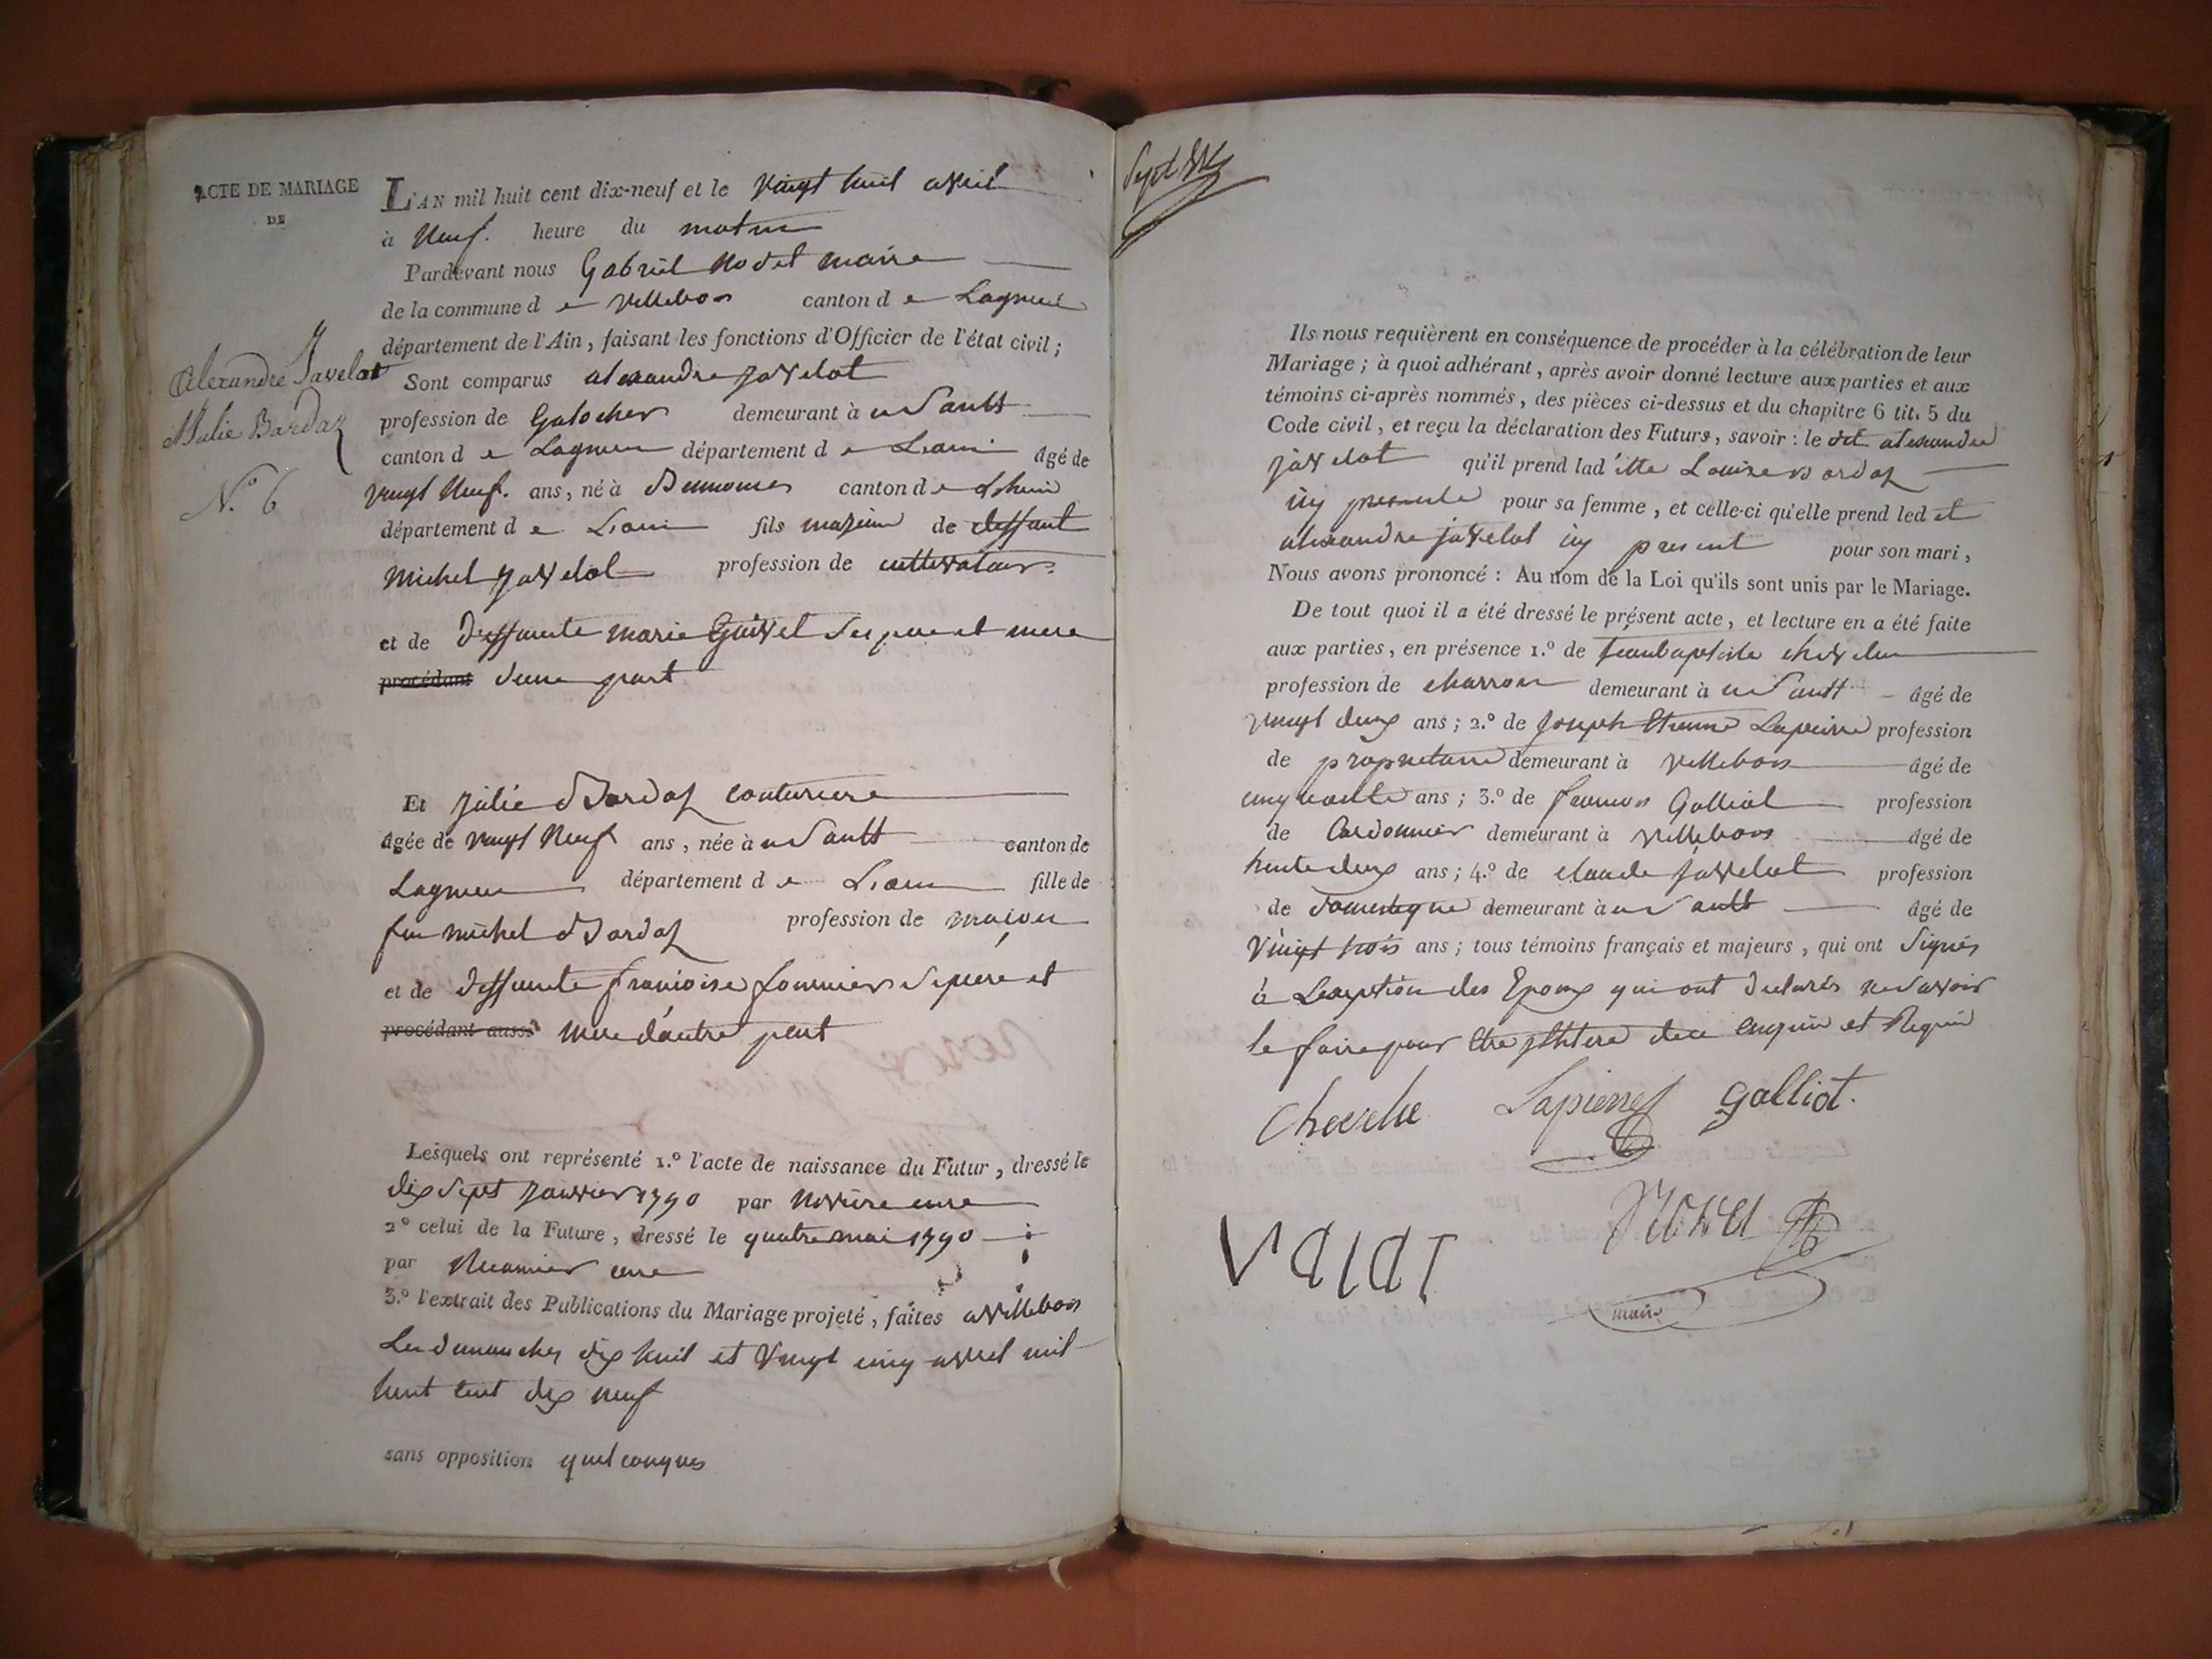 ACTE DE MARIAGE
DE
Alexandre Javelot
& Julie Bardaz
N.° 6
L'AN mil huit cent dix-neuf et le vingt huit avril
à Neuf. heure du matin
Pardevant nous Gabriel Nodet maire
de la commune d e villebois canton d e Lagnieu
département de l'Ain, faisant les fonctions d'Officier de l'état civil ;
Sont comparus alexandre javelot
profession de Galocher demeurant à
canton d e Lagnieu département d e Lain âgé de
vingt Neuf. ans, né à canton d e
département d e Lain fils majeur de deffunt
Michel javelot profession de cultivateur.
et de deffunte marie ses pere et mere
procédant d'une part
Et julie Bardaz couturiere
âgée de vingt Neuf ans, née à canton de
Lagnieu département d e Lain fille de
feu michel Bardaz profession de maçon
et de deffunte françoise fournier pere et
procédant aussi mere d'autre part
Lesquels ont représenté 1.° l'acte de naissance du Futur, dressé le
dix sept janvier 1790 par cure
2° celui de la Future, dressé le quatre mai 1790
par cure
3.° l'extrait des Publications du Mariage projeté, faites a villebois
Les dimanches dix huit et vingt cinq avril mil
huit cent dix neuf
sans opposition quelconques
Ils nous requièrent en conséquence de procéder à la célébration de leur
Mariage ; à quoi adhérant, après avoir donné lecture aux parties et aux
témoins ci-après nommés, des pièces ci-dessus et du chapitre 6 tit. 5 du
Code civil, et reçu la déclaration des Futurs, savoir : le dit alexandre
javelot qu'il prend lad itte Louise Bardaz
icy presente pour sa femme, et celle-ci qu'elle prend led it
alexandre javelot icy present pour son mari,
Nous avons prononcé : Au nom de la Loi qu'ils sont unis par le Mariage.
De tout quoi il a été dressé le présent acte, et lecture en a été faite
aux parties, en présence 1.° de jeanbaptiste
profession de charron demeurant à âgé de
vingt deux ans ; 2.° de joseph Etienne Lapierre profession
de proprietaire demeurant à villebois âgé de
cinquante ans ; 3.° de francois Galliot profession
de Cordonnier demeurant à villebois âgé de
trente deux ans ; 4.° de claude javelot profession
de domestique demeurant à âgé de
vingt trois ans ; tous témoins français et majeurs, qui ont signés
à Lexeption des Epoux qui ont declarés ne savoir
le faire pour etre illitere de ce enquis et Requis
Lapierre Galliot.
maire